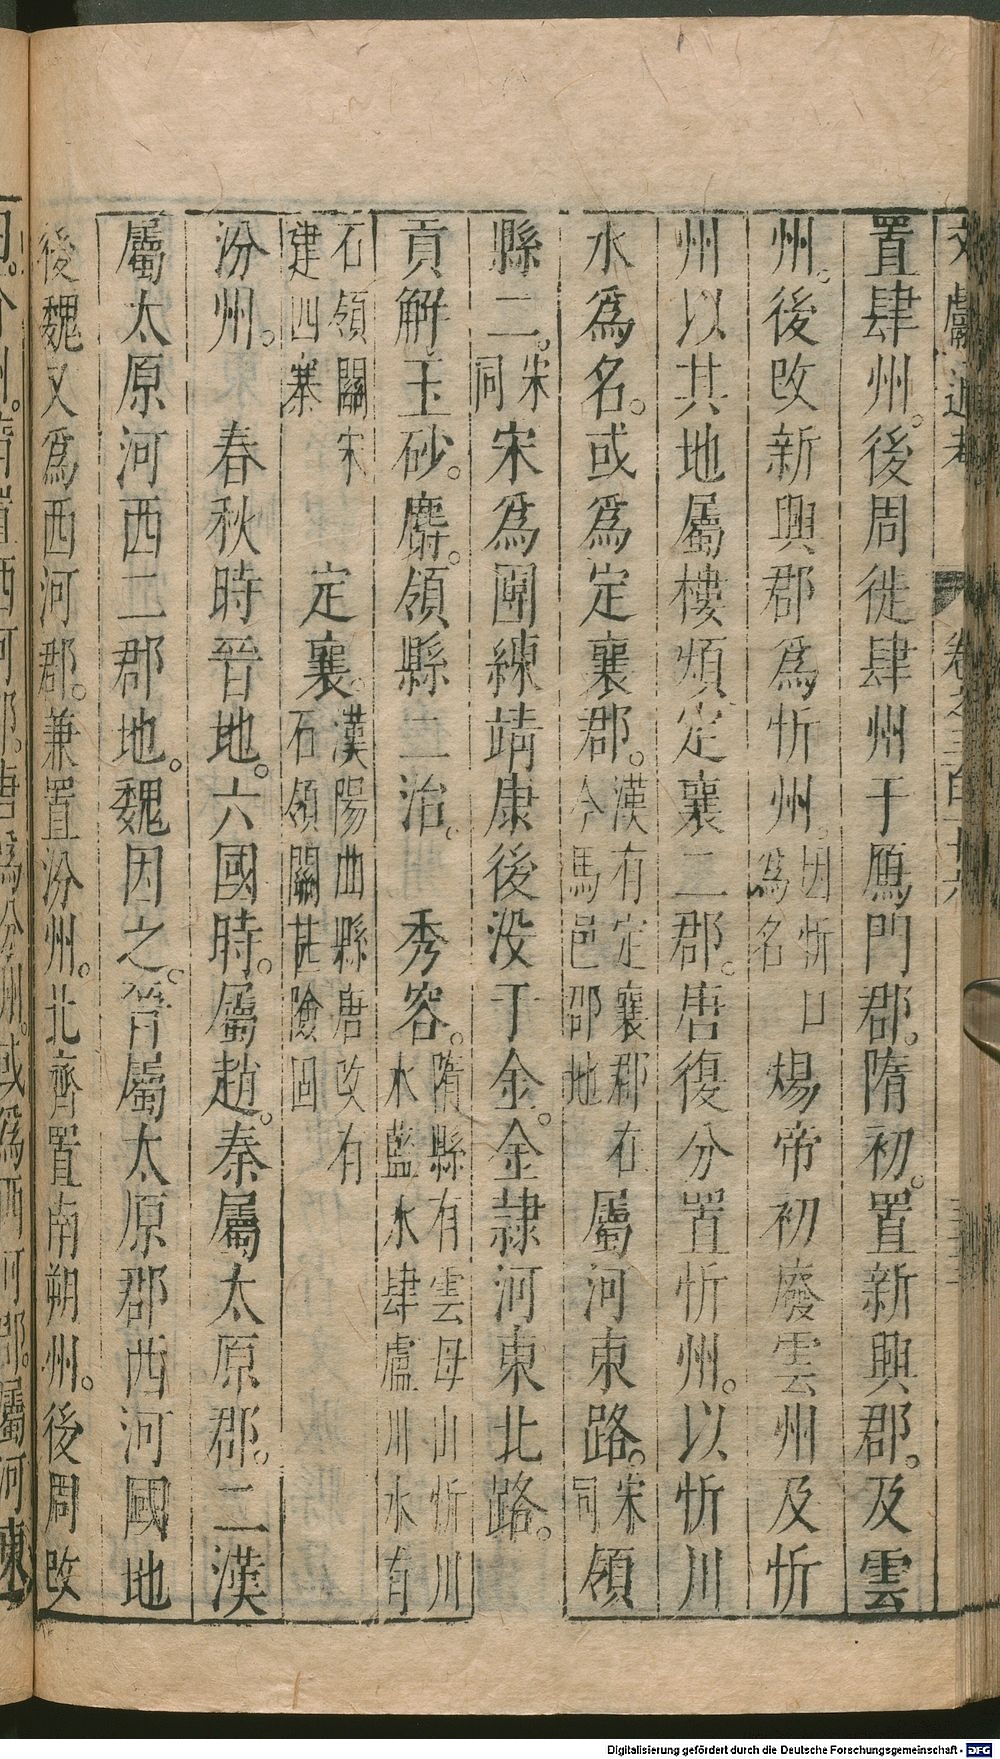 文獻通考 卷之三百十六
置肆州。後周徙肆州于鴈門郡。隋初。置新興郡。及雲
州。後改新興郡爲忻州。因忻口爲名 煬帝初廢雲州及忻
州以其地屬樓煩定襄二郡。唐復分置忻州。以忻川
水爲名。或爲定襄郡。漢有定襄郡在今馬邑郡地 屬河東路。宋同 領
縣二。宋同 宋爲團練靖康後没于金。金隷河東北路。
貢解玉砂。麝。領縣二治。 秀容。隋縣有雲母山忻川水藍水肆盧川水有
石嶺關宋建四寨 定襄。漢陽曲縣唐改有石嶺關甚險固
汾州。 春秋時晉地。六國時。屬趙。秦屬太原郡。二漢
屬太原河西二郡地。魏因之。晉屬太原郡西河國地
後魏又爲西河郡。兼置汾州。北齊置南朔州。後周改
曰。介州。隋置西河郡。唐爲汾州。或爲西河郡。屬河東
Digitalisierung gefördert durch die Deutsche Forschungsgemeinschaft - DFG